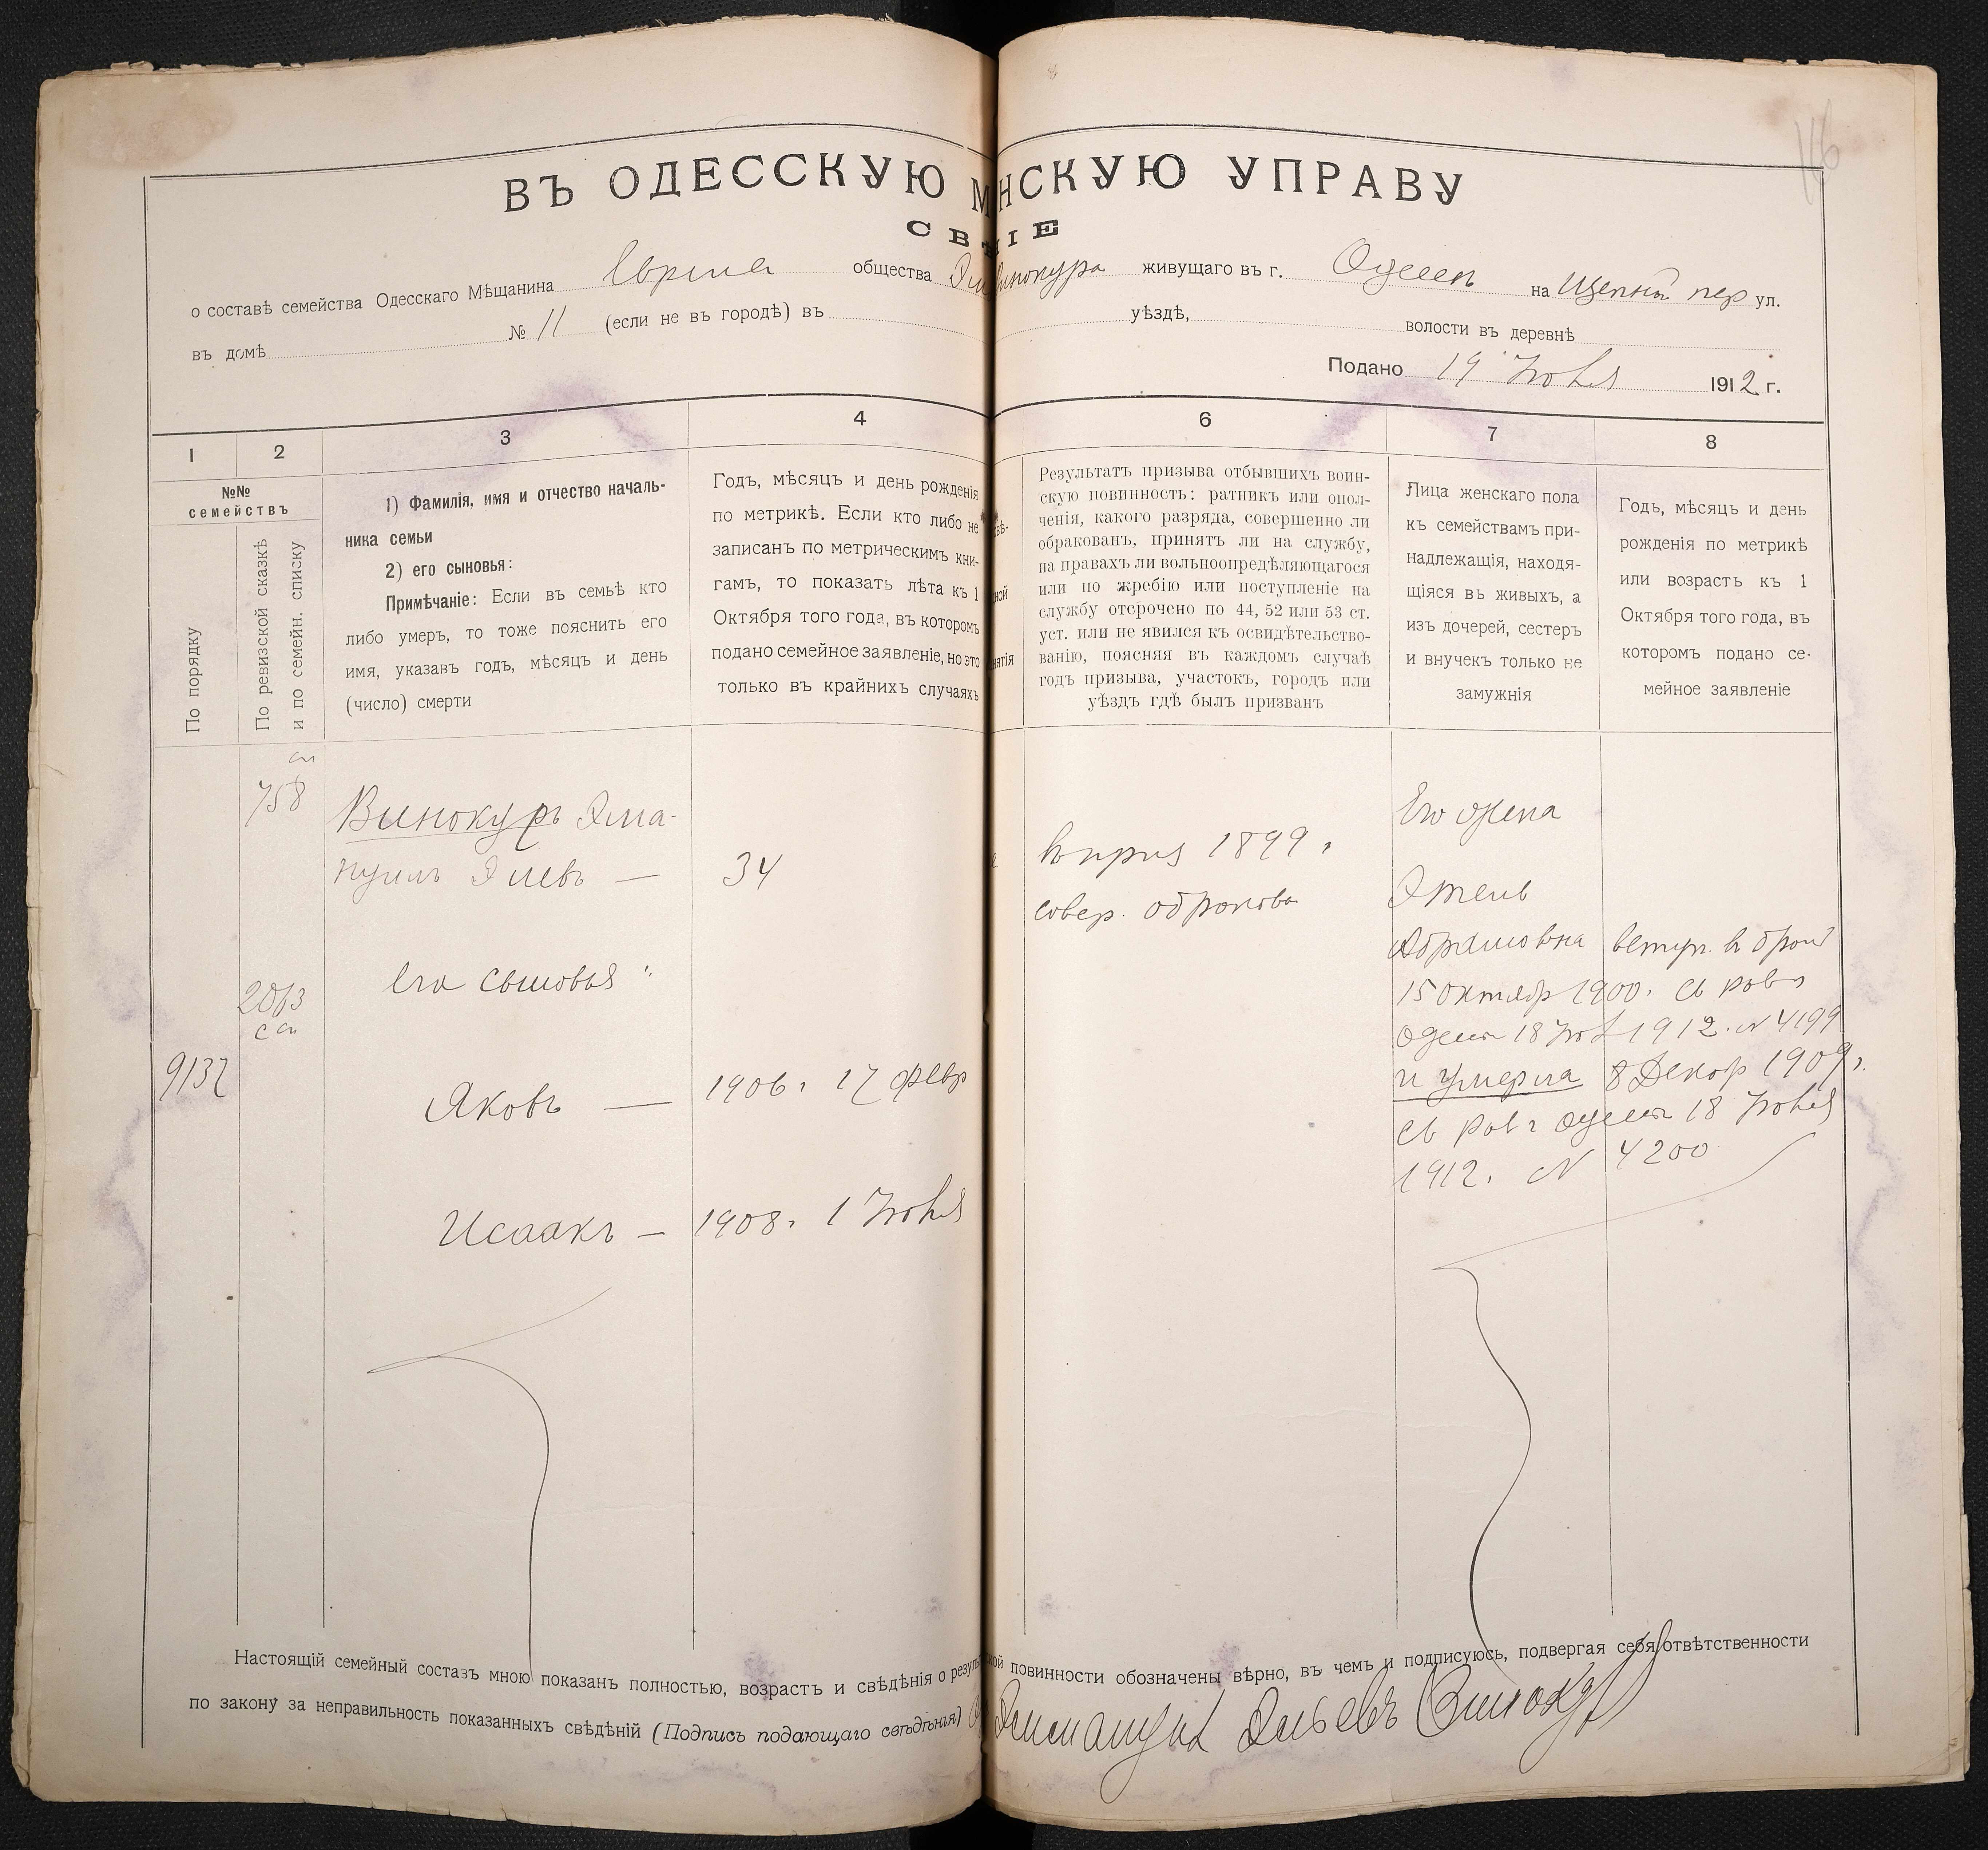 146
ВЪ ОДЕССКУЮ М НСКУЮ УПРАВУ
СВ НІЕ
о составѣ семейства Одесскаго Мѣщанина общества Эм Винокура живущаго въ г. Одессѣ на Щепной пер ул.
въ домѣ № 11 (если не въ городѣ) въ уѣздѣ, волости въ деревнѣ
Подано 19 Іюня 1912 г.
1 2 3 4 6 7 8
№№
семействъ
По порядку
По ревизской сказкѣ
и по семейн. списку
1) Фамилія, имя и отчество началь-
ника семьи
2) его сыновья:
Примѣчаніе: Если въ семьѣ кто
либо умеръ, то тоже пояснить его
имя, указавъ годъ, мѣсяцъ и день
(число) смерти
Годъ, мѣсяцъ и день рожденія
по метрикѣ. Если кто либо не
записанъ по метрическимъ кни-
гамъ, то показать лѣта къ 1
Октября того года, въ которомъ
подано семейное заявленіе, но это
только въ крайнихъ случаяхъ
Результатъ призыва отбывшихъ воин-
скую повинность: ратникъ или опол-
ченія, какого разряда, совершенно ли
обракованъ, принятъ ли на службу,
на правахъ ли вольноопредѣляющагося
или по жребію или поступленіе на
службу отсрочено по 44, 52 или 53 ст.
уст. или не явился къ освидѣтельство-
ванію, поясняя въ каждомъ случаѣ
годъ призыва, участокъ, городъ или
уѣздъ гдѣ былъ призванъ
Лица женскаго пола
къ семействамъ при-
надлежащія, находя-
щіяся въ живыхъ, а
изъ дочерей, сестеръ
и внучекъ только не
замужнія
Годъ, мѣсяцъ и день
рожденія по метрикѣ
или возрастъ къ 1
Октября того года, въ
которомъ подано се-
мейное заявленіе
758
Винокуръ Эма-
нуилъ Эліевъ — 34
въ приз 1899 г
совер. обракова
Его жена
Этель
Абрамовна вступ. в брак
15 октября 1900 г. св рав г
Одессы 18 Іюня 1912 г. № 4199
и умерла 8 Декабр 1909 г.
св рав г Одессы 18 Іюня
1912 г. № 4200
Его сыновья:
9132
Яковъ — 1906 г 17 февр
Исаакъ — 1908 г 1 Іюня
Настоящій семейный составъ мною показанъ полностью, возрастъ и свѣдѣнія о резуль ской повинности обозначены вѣрно, въ чемъ и подписуюсь, подвергая себя отвѣтственности
по закону за неправильность показанныхъ свѣдѣній (Подпись подающаго свѣдѣнія) Эммануил Эльевъ Винокур